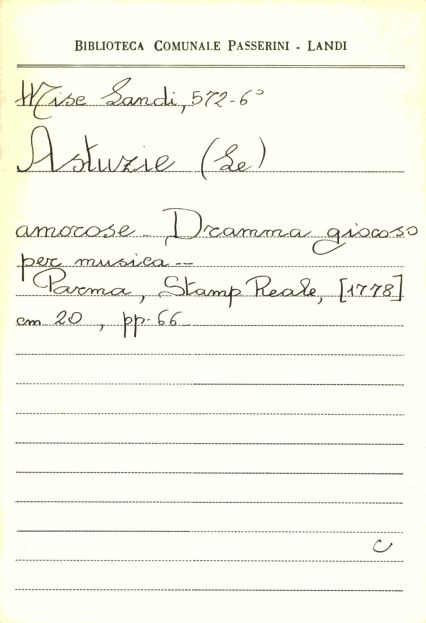 BIBLIOTECA COMUNALE PASSERINI - LANDI
Misc Landi, 572-6°
Astuzie (Le)
amorose - Dramma giocoso
per musica --
Parma, Stamp Reale, [1778]
cm 20, pp. 66
C